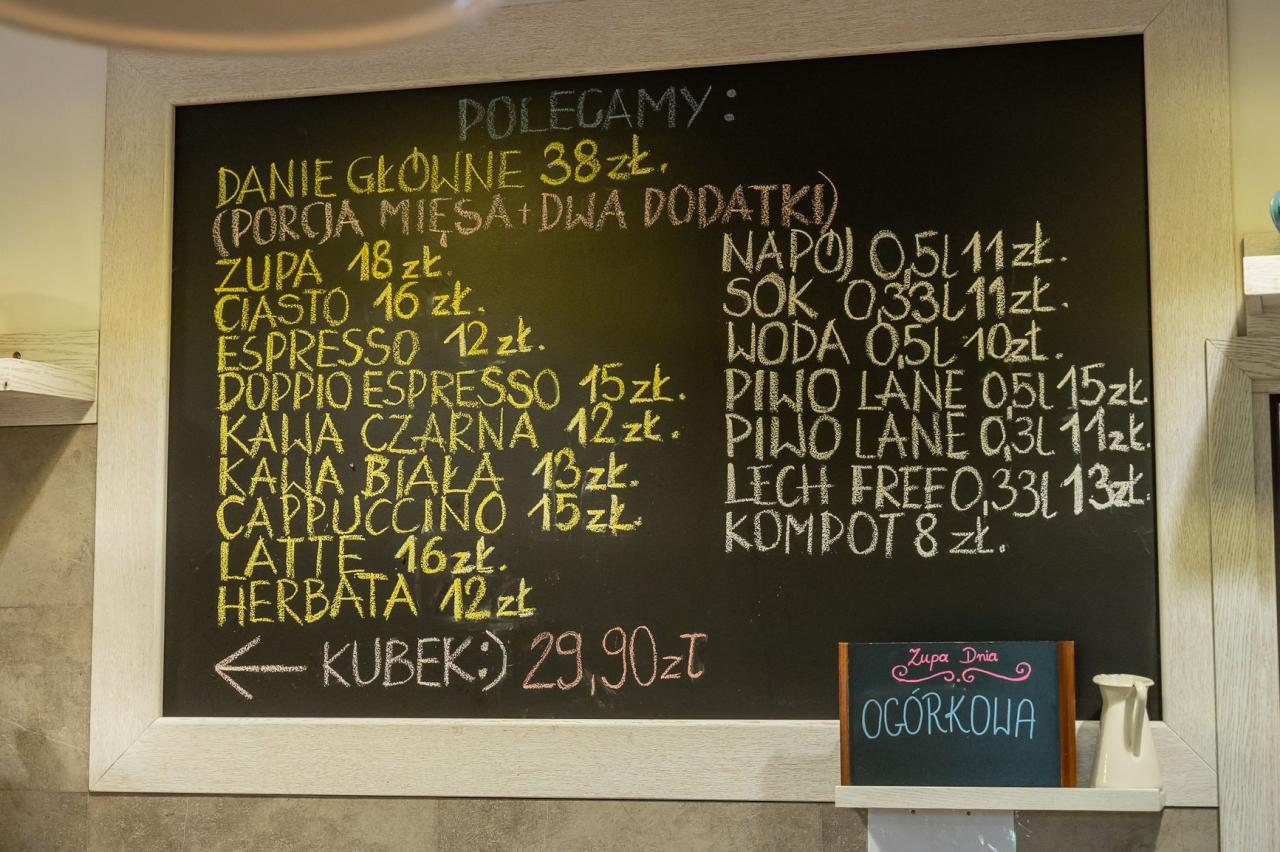 POLECAMY:
DANIE GŁÓWNE 38 zł.
(PORCJA MIĘSA + DWA DODATKI)
ZUPA 18 zł.
CIASTO 16 zł.
ESPRESSO 12 zł.
DOPPIO ESPRESSO 15 zł.
KAWA CZARNA 12 zł.
KAWA BIAŁA 13 zł.
CAPPUCCINO 15 zł.
LATTE 16 zł.
HERBATA 12 zł
← KUBEK:) 29,90 zł
NAPÓJ 0,5l 11 zł.
SOK 0,33l 11 zł.
WODA 0,5l 10 zł.
PIWO LANE 0,5l 15 zł.
PIWO LANE 0,3l 11 zł.
LECH FREE 0,33l 13 zł.
KOMPOT 8 zł.
Zupa Dnia
OGÓRKOWA